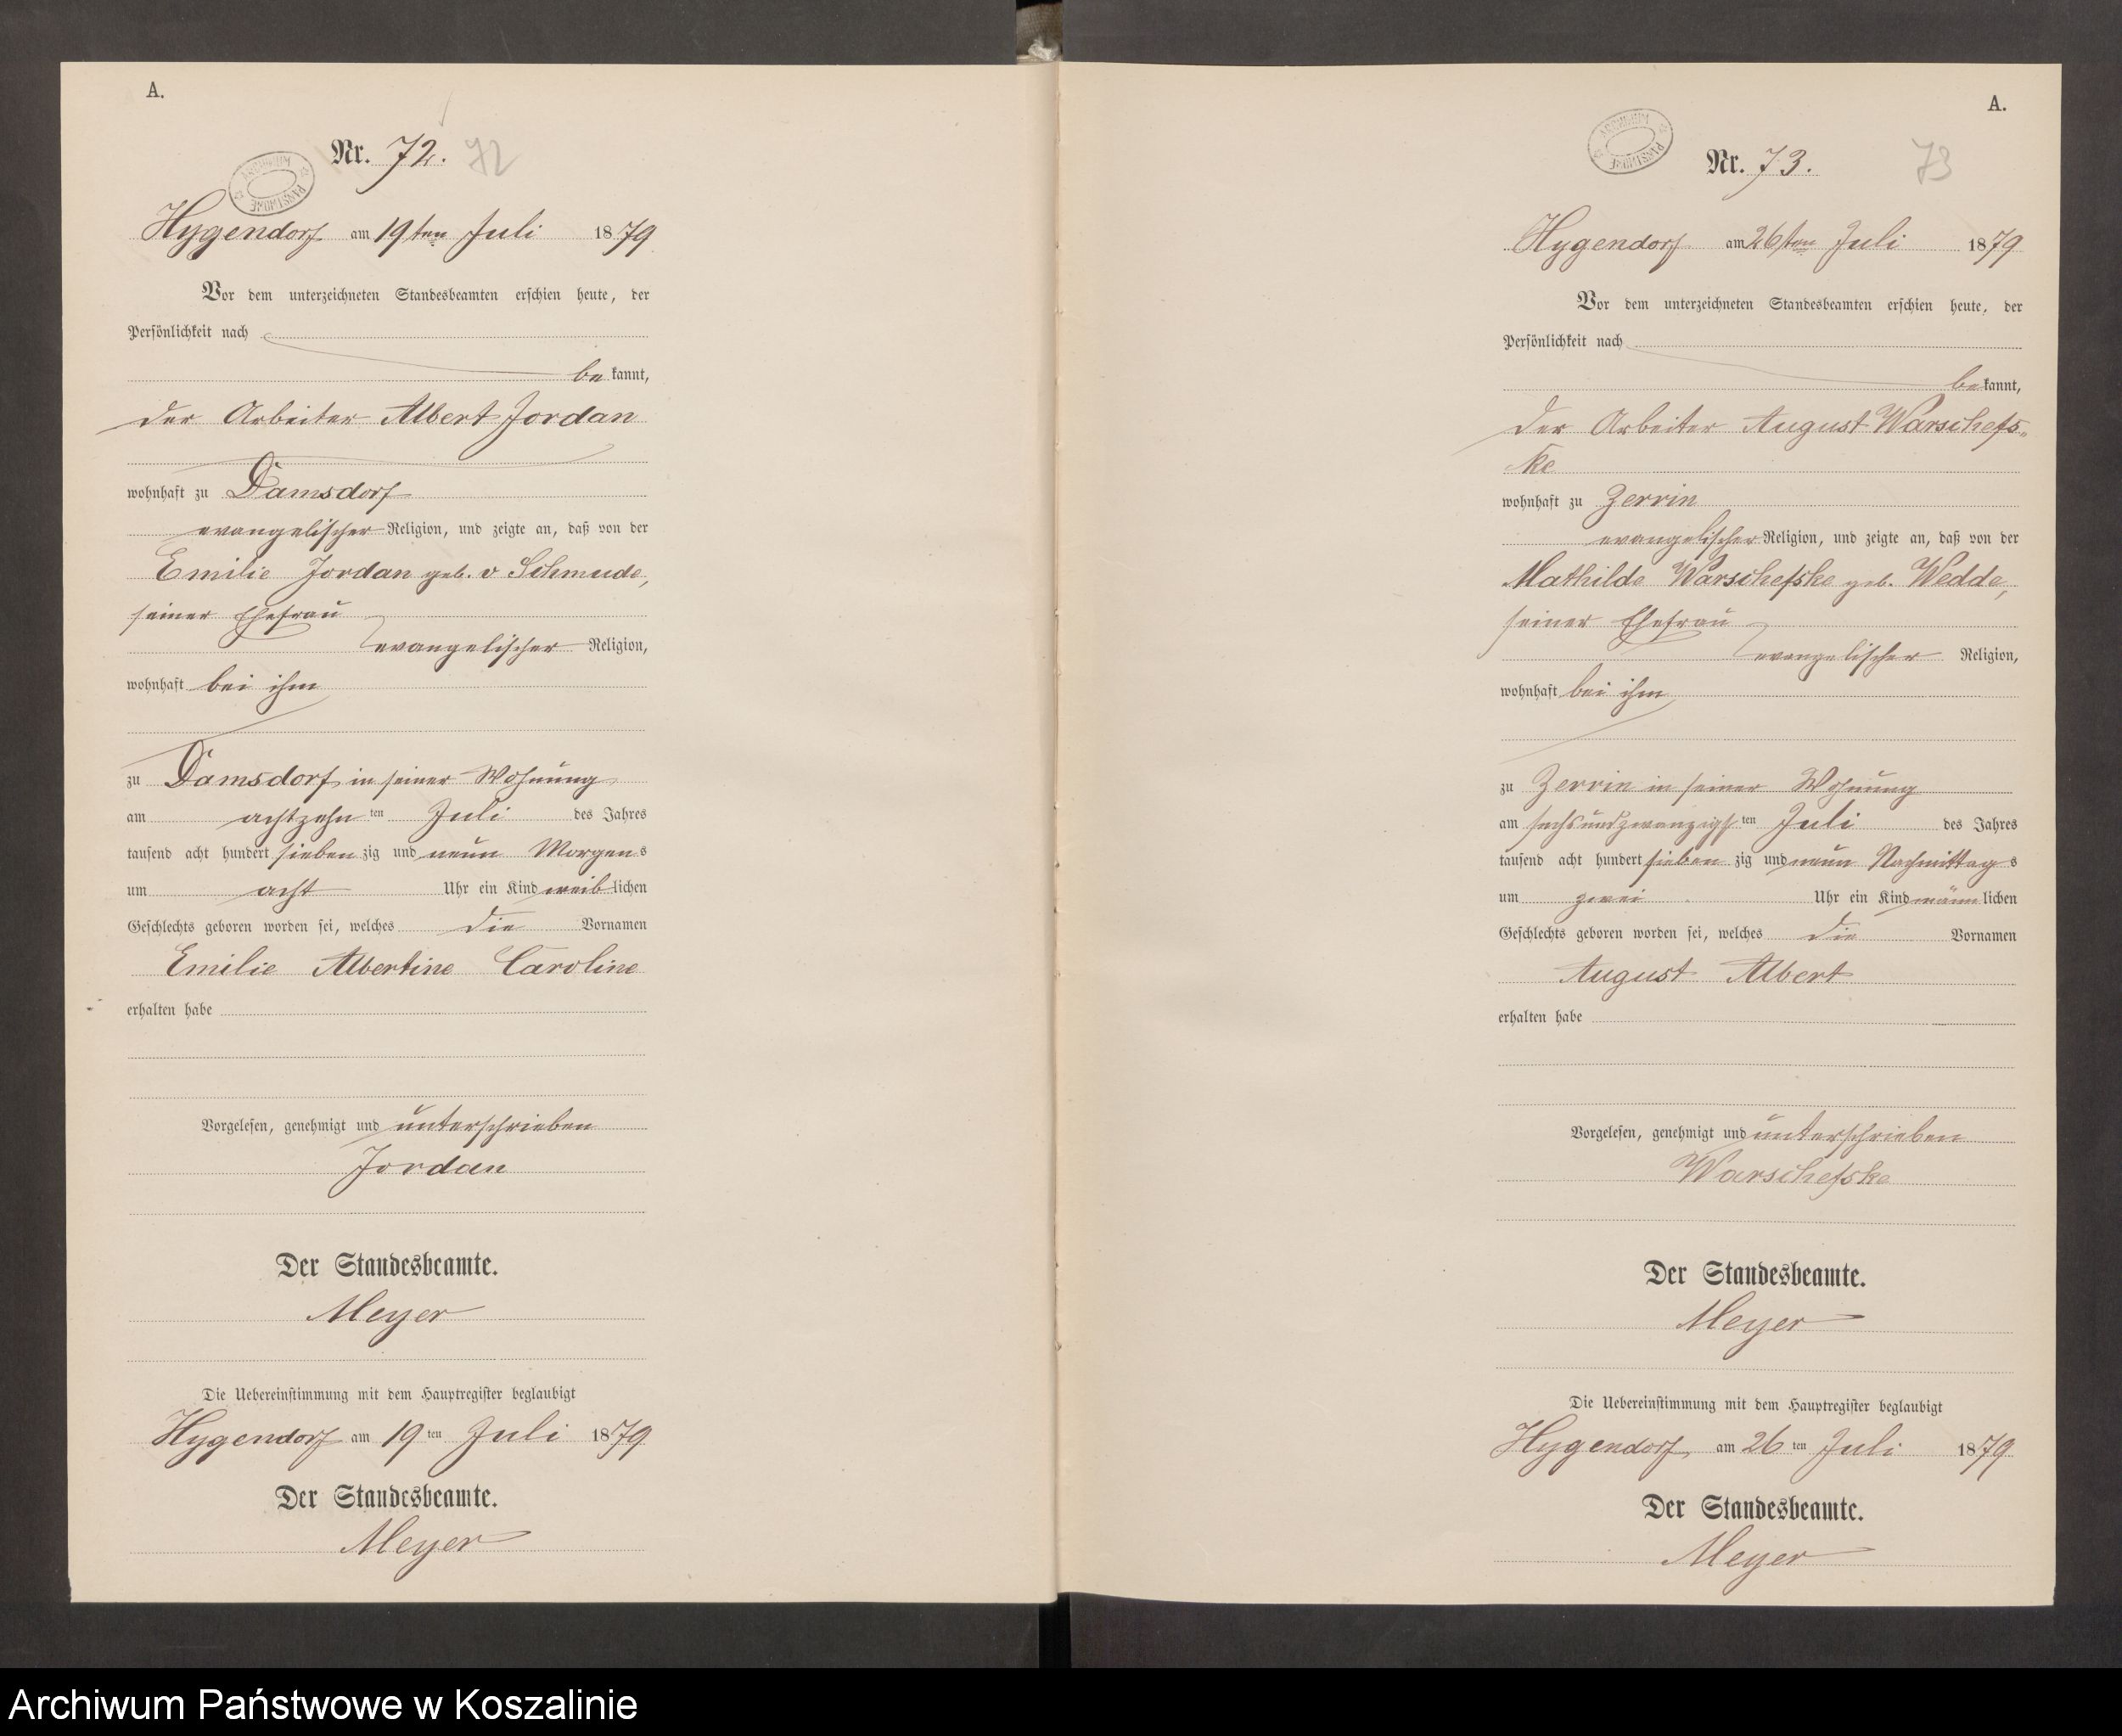 A.
Nr. 72. 72
Hygendorf am 19ten Juli 1879
Vor dem unterzeichneten Standesbeamten erschien heute, der
Persönlichkeit nach
be kannt,
der Arbeiter Albert Jordan
wohnhaft zu Damsdorf
evangelischer Religion, und zeigte an, daß von der
Emilie Jordan geb. v Schmude,
seiner Ehefrau
evangelischer Religion,
wohnhaft bei ihm
zu Damsdorf in seiner Wohnung
am achtzehn ten Juli des Jahres
tausend acht hundert sieben zig und neun Morgens
um acht Uhr ein Kind weiblichen
Geschlechts geboren worden sei, welches die Vornamen
Emilie Albertine Caroline
erhalten habe
Vorgelesen, genehmigt und unterschrieben
Jordan
Der Standesbeamte.
Meyer
Die Uebereinstimmung mit dem Hauptregister beglaubigt
Hygendorf am 19 ten Juli 1879
Der Standesbeamte.
Meyer
A.
ARCHIWUM PAŃSTWOWE
Nr. 73. 73
Hygendorf am 26ten Juli 1879
Vor dem unterzeichneten Standesbeamten erschien heute, der
Persönlichkeit nach
bekannt,
der Arbeiter August Warschefs-
ke
wohnhaft zu Zerrin
evangelischer Religion, und zeigte an, daß von der
Mathilde Warschefske geb. Wedde,
seiner Ehefrau
evangelischer Religion,
wohnhaft bei ihm
zu Zerrin in seiner Wohnung
am sechsundzwanzigs ten Juli des Jahres
tausend acht hundert sieben zig und neun Nachmittag s
um zwei Uhr ein Kind männlichen
Geschlechts geboren worden sei, welches die Vornamen
August Albert
erhalten habe
Vorgelesen, genehmigt und unterschrieben
Warschefske
Der Standesbeamte.
Meyer
Die Uebereinstimmung mit dem Hauptregister beglaubigt
Hygendorf am 26 ten Juli 1879
Der Standesbeamte.
Meyer
Archiwum Państwowe w Koszalinie